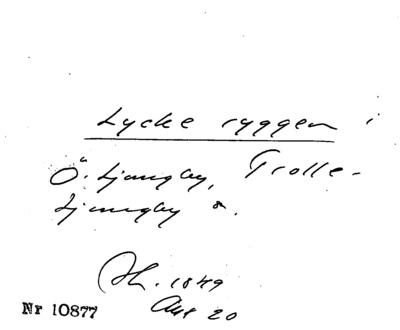 Lycke ryggen i
Ö. Ljungby, Trolle-
Ljungby s.
Sk. 1849
Akt 20
Nr 10877